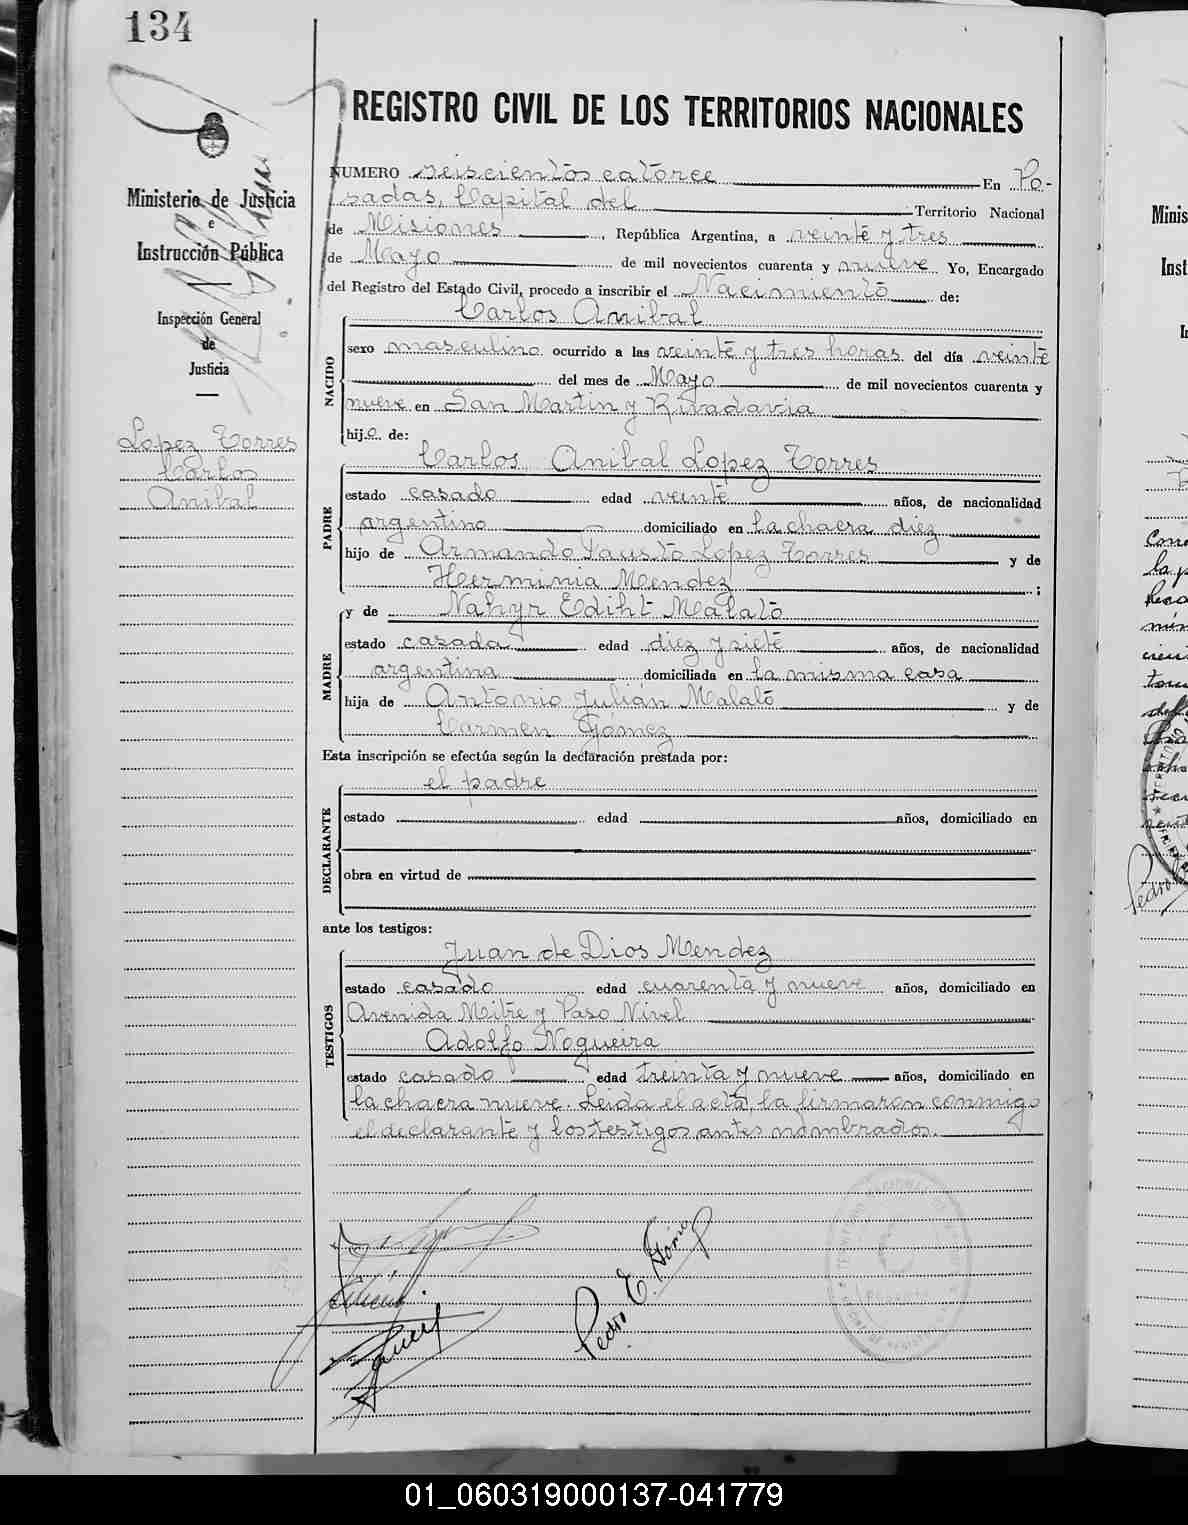 134
REGISTRO CIVIL DE LOS TERRITORIOS NACIONALES
Ministerio de Justicia
e
Instrucción Pública
Inspección General
de
Justicia
Lopez Torres
Carlos
Anibal
NUMERO seiscientos catorce En Po-
sadas, Capital del Territorio Nacional
de Misiones, República Argentina, a veinte y tres
de Mayo de mil novecientos cuarenta y nueve Yo, Encargado
del Registro del Estado Civil, procedo a inscribir el Nacimiento de:
NACIDO
Carlos Anibal
sexo masculino ocurrido a las veinte y tres horas del día veinte
del mes de Mayo de mil novecientos cuarenta y
nueve en San Martin y Rivadavia
hijo de:
PADRE
Carlos Anibal Lopez Torres
estado casado edad veinte años, de nacionalidad
argentino domiciliado en la chacra diez
hijo de Armando Fausto Lopez Torres y de
Herminia Mendez;
MADRE
y de Nahyr Ediht Malato
estado casada edad diez y siete años, de nacionalidad
argentina domiciliada en la misma casa
hija de Antonio Julián Malato y de
Carmen Gómez
Esta inscripción se efectúa según la declaración prestada por:
DECLARANTE
el padre
estado edad años, domiciliado en
obra en virtud de
ante los testigos:
TESTIGOS
Juan de Dios Mendez
estado casado edad cuarenta y nueve años, domiciliado en
Avenida Mitre y Paso Nivel
Adolfo Nogueira
estado casado edad treinta y nueve años, domiciliado en
la chacra nueve. Leida el acta, la firmaron conmigo
el declarante y los testigos antes nombrados.
Pedro E.
Minis
Inst
la p
Pedro
01_060319000137-041779